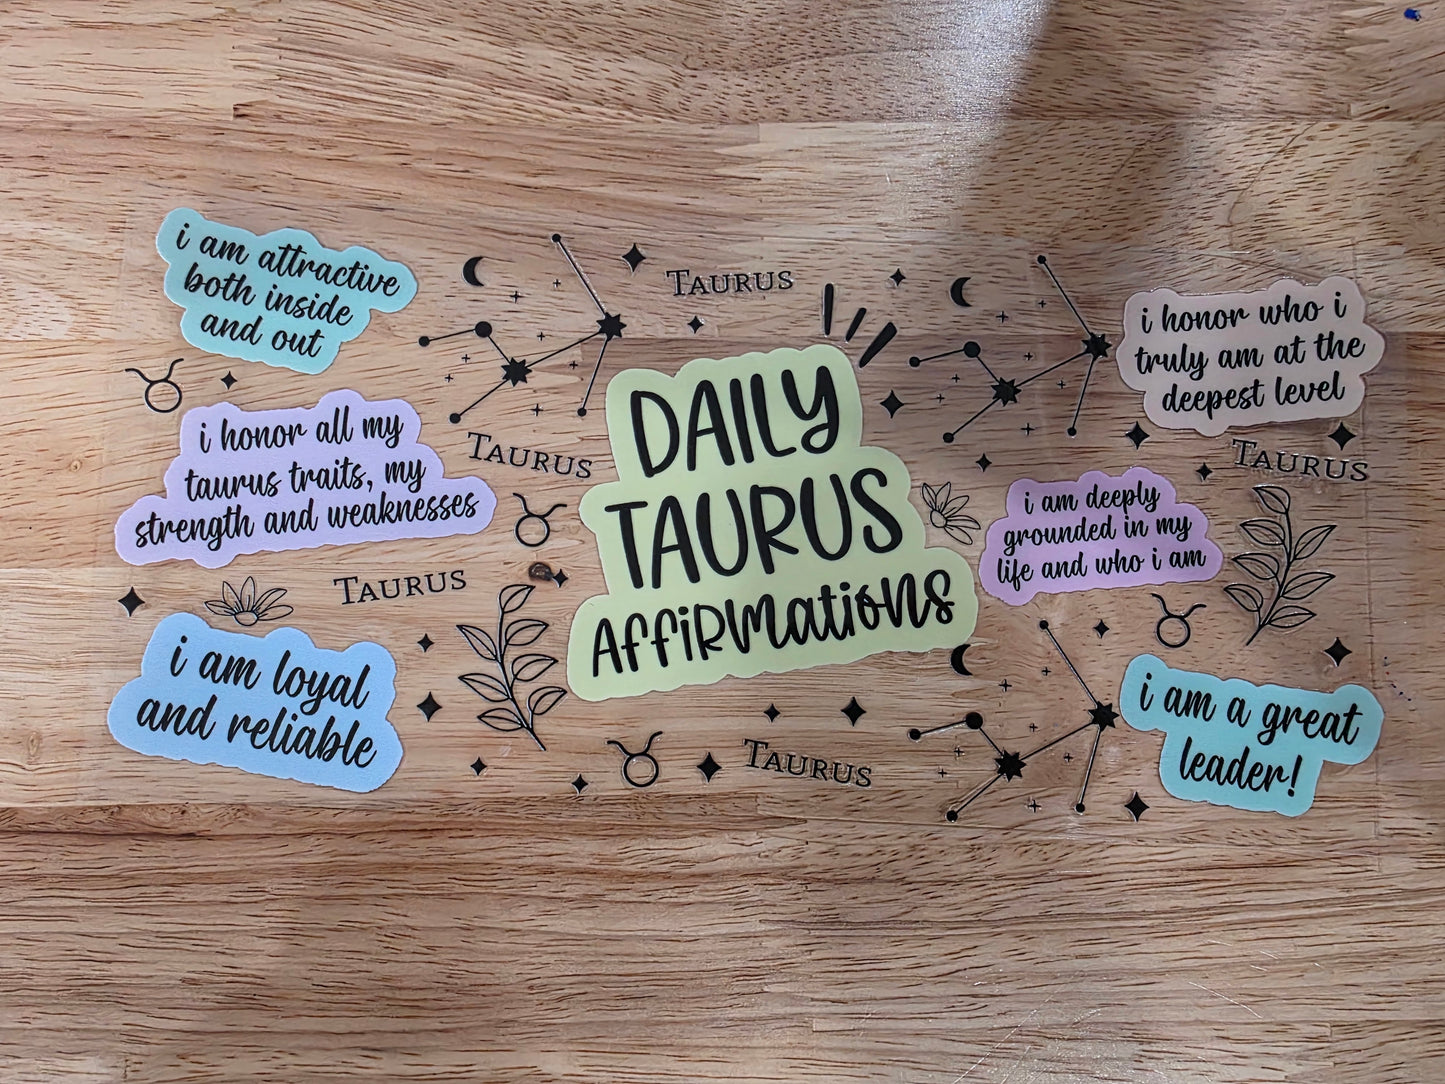 i am attractive
both inside
and out
i honor all my
taurus traits, my
strength and weaknesses
Taurus
i am loyal
and reliable
Taurus
Taurus
DAILY
TAURUS
AFFiRMations
Taurus
i honor who i
truly am at the
deepest level
Taurus
i am deeply
grounded in my
life and who i am
i am a great
leader!